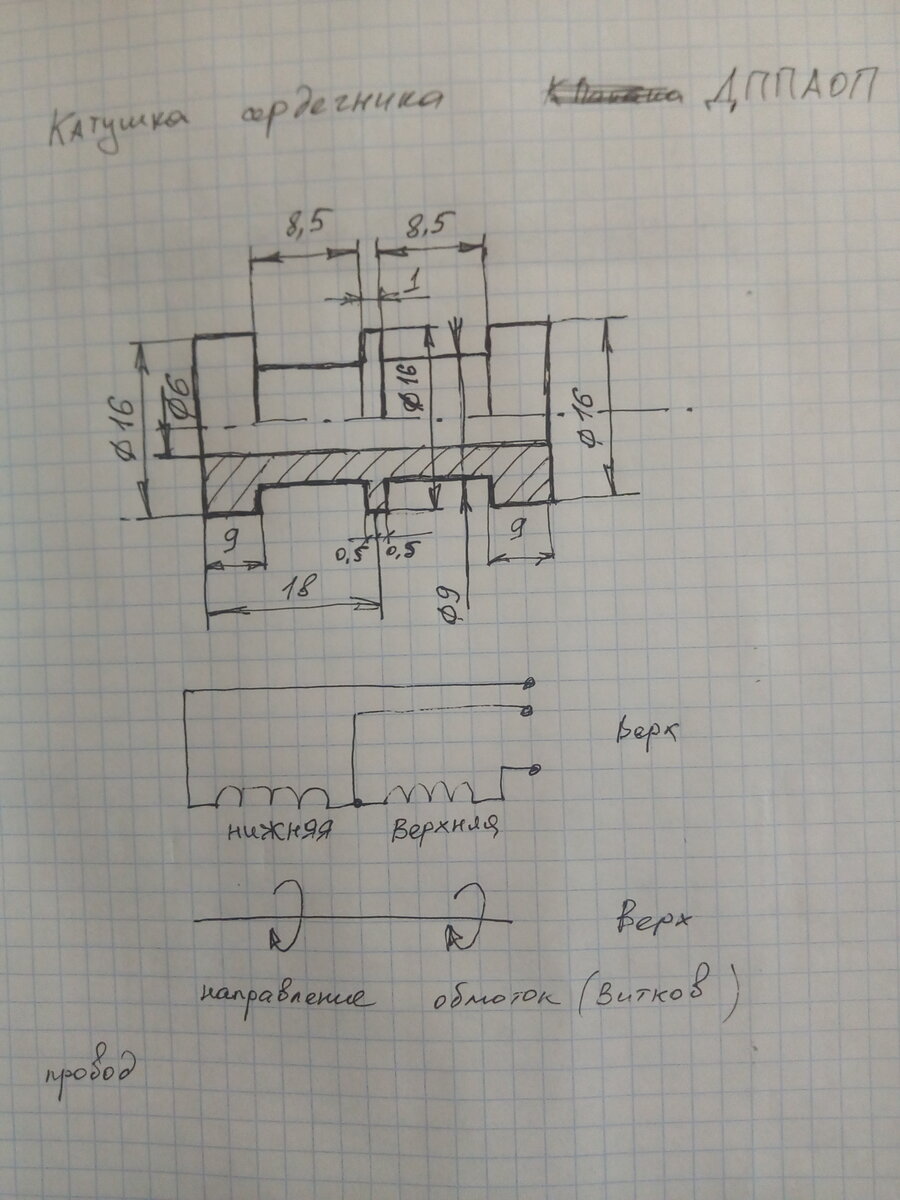 Катушка сердечника ДППАОП
8,5 8,5
1
ϕ16 ϕ6 ϕ16 ϕ16
9 0,5 0,5 9
18 ϕ9
Верх
нижняя Верхняя
Верх
направление обмоток (витков)
провод